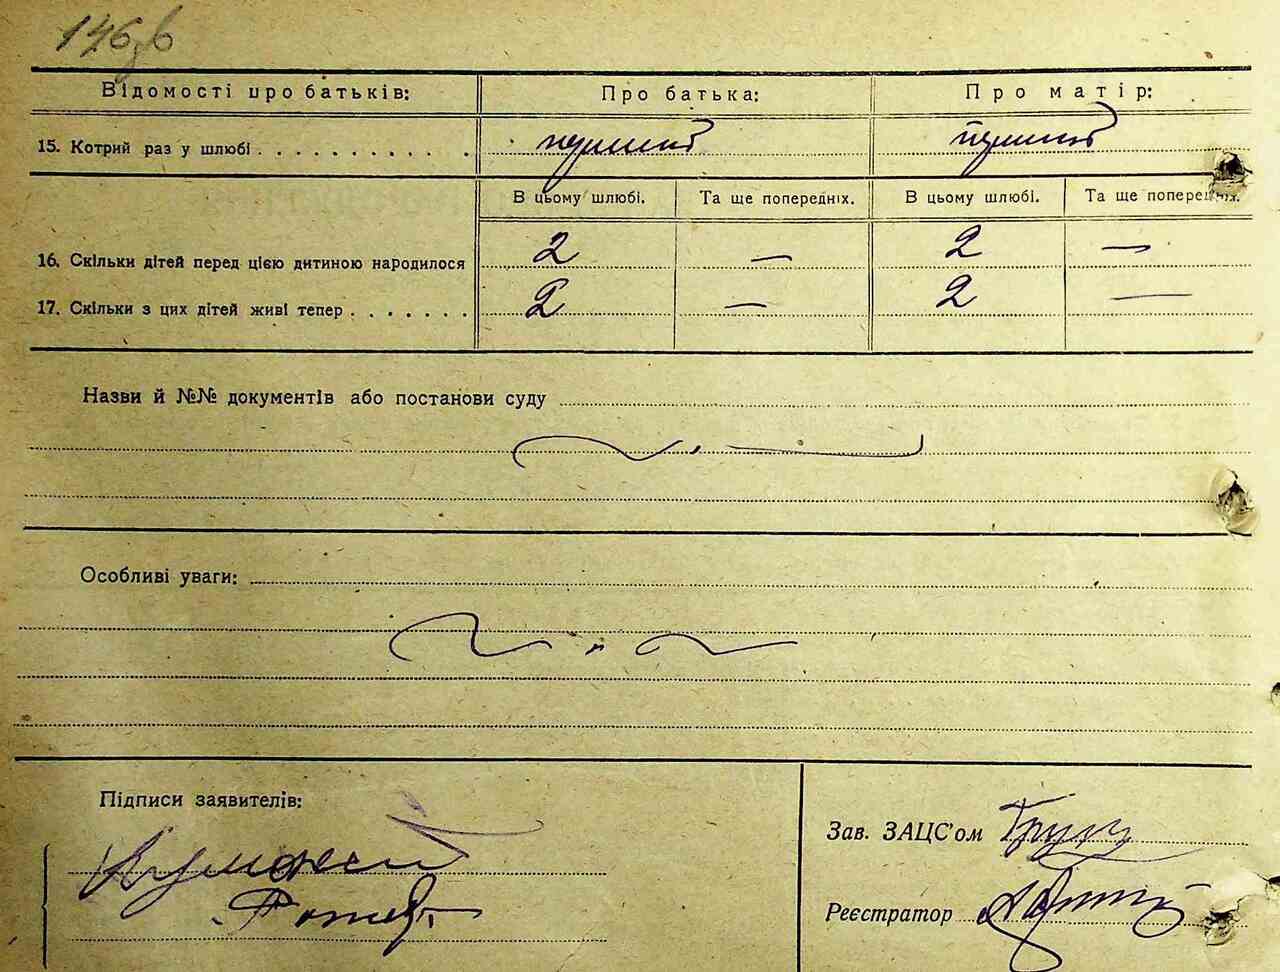 Відомості про батьків: Про батька: Про матір:
15. Котрий раз у шлюбі . . . . . . . . . . . перший перший
В цьому шлюбі. Та ще попередніх. В цьому шлюбі. Та ще попередніх.
16. Скільки дітей перед цією дитиною народилося 2 — 2 —
17. Скільки з цих дітей живі тепер . . . . . . . 2 — 2 —
Назви й №№ документів або постанови суду
Особливі уваги:
Підписи заявителів:
Зав. ЗАЦС'ом
Реєстратор